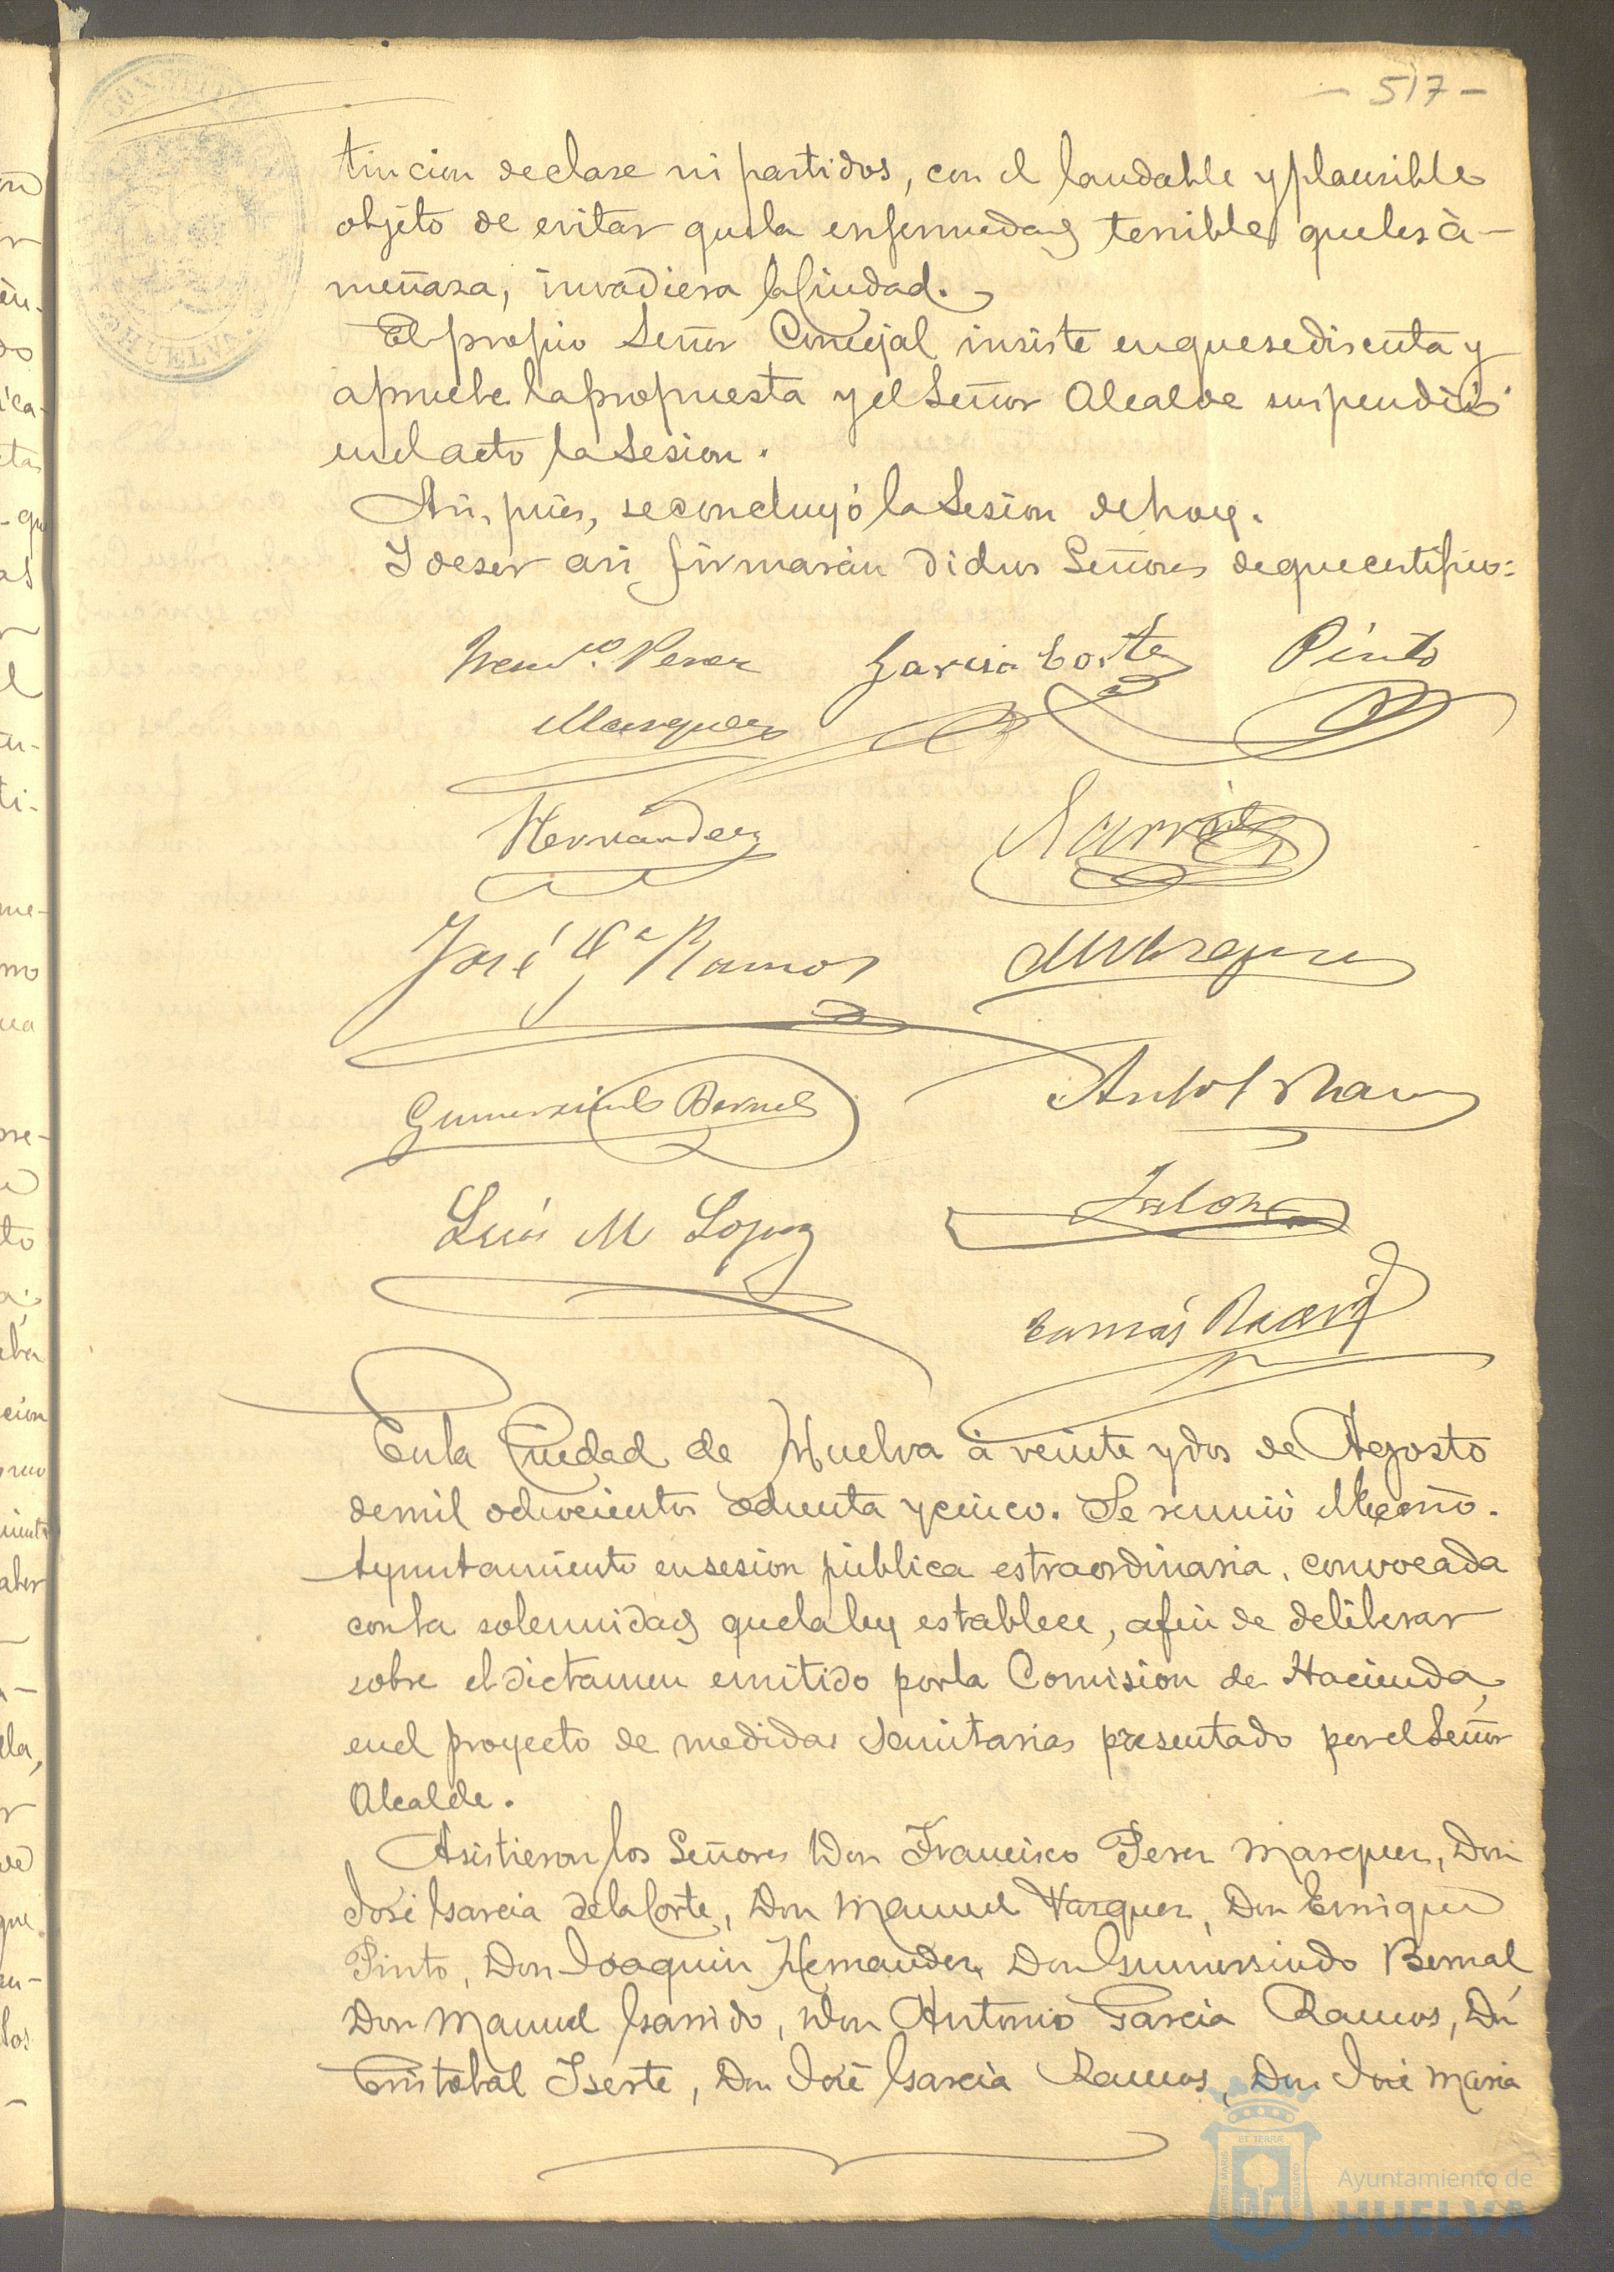 - 517 -
tincion de clase ni partidos, con el laudable y plausible
objeto de evitar que la enfermedad terrible que les à-
menaza, invadiera la Ciudad.
El propio Señor Concejal insiste en que se discuta y
apruebe la propuesta y el Señor Alcalde suspendió
en el acto la Sesion.
Asi, pues, se concluyó la Sesion de hoy.
Y de ser asi firmarán dichos Señores de que certifico:
Franco. Perez Garcia Corte Pinto
Marquez
Hernandez
José Ga Ramos
Gumersindo Bernal
Luis M Lopez
Jalon
Tomás
En la Ciudad de Huelva à veinte y dos de Agosto
de mil ochocientos ochenta y cinco. Se reunió el Excmo.
Ayuntamiento en sesion pública estraordinaria, convocada
con la solemnidad que la ley establece, a fin de deliberar
sobre el dictamen emitido por la Comision de Hacienda
en el proyecto de medidas sanitarias presentado por el Señor
Alcalde.
Asistieron los Señores Don Francisco Perez Marquez, Don
José Garcia de la Corte, Don Manuel Vazquez, Don Enrique
Pinto, Don Joaquin Hernandez, Don Gumersindo Bernal
Don Manuel Garrido, Don Antonio Garcia Ramos, Dn
Cristobal Iserte, Don José Garcia Ramos, Don José Maria
Ayuntamiento de
HUELVA